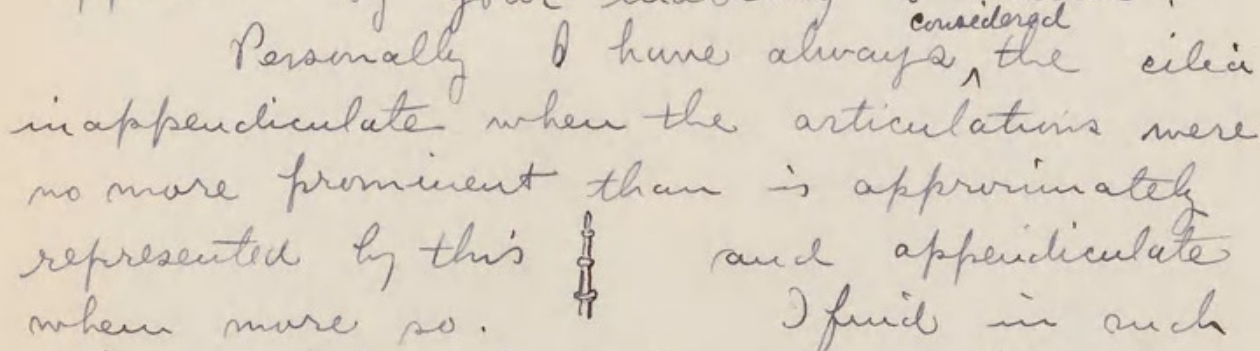 Personally I have always considered the cilia
inappendiculate when the articulations were
no more prominent than is approximately
represented by this and appendiculate
when more so. I find in such